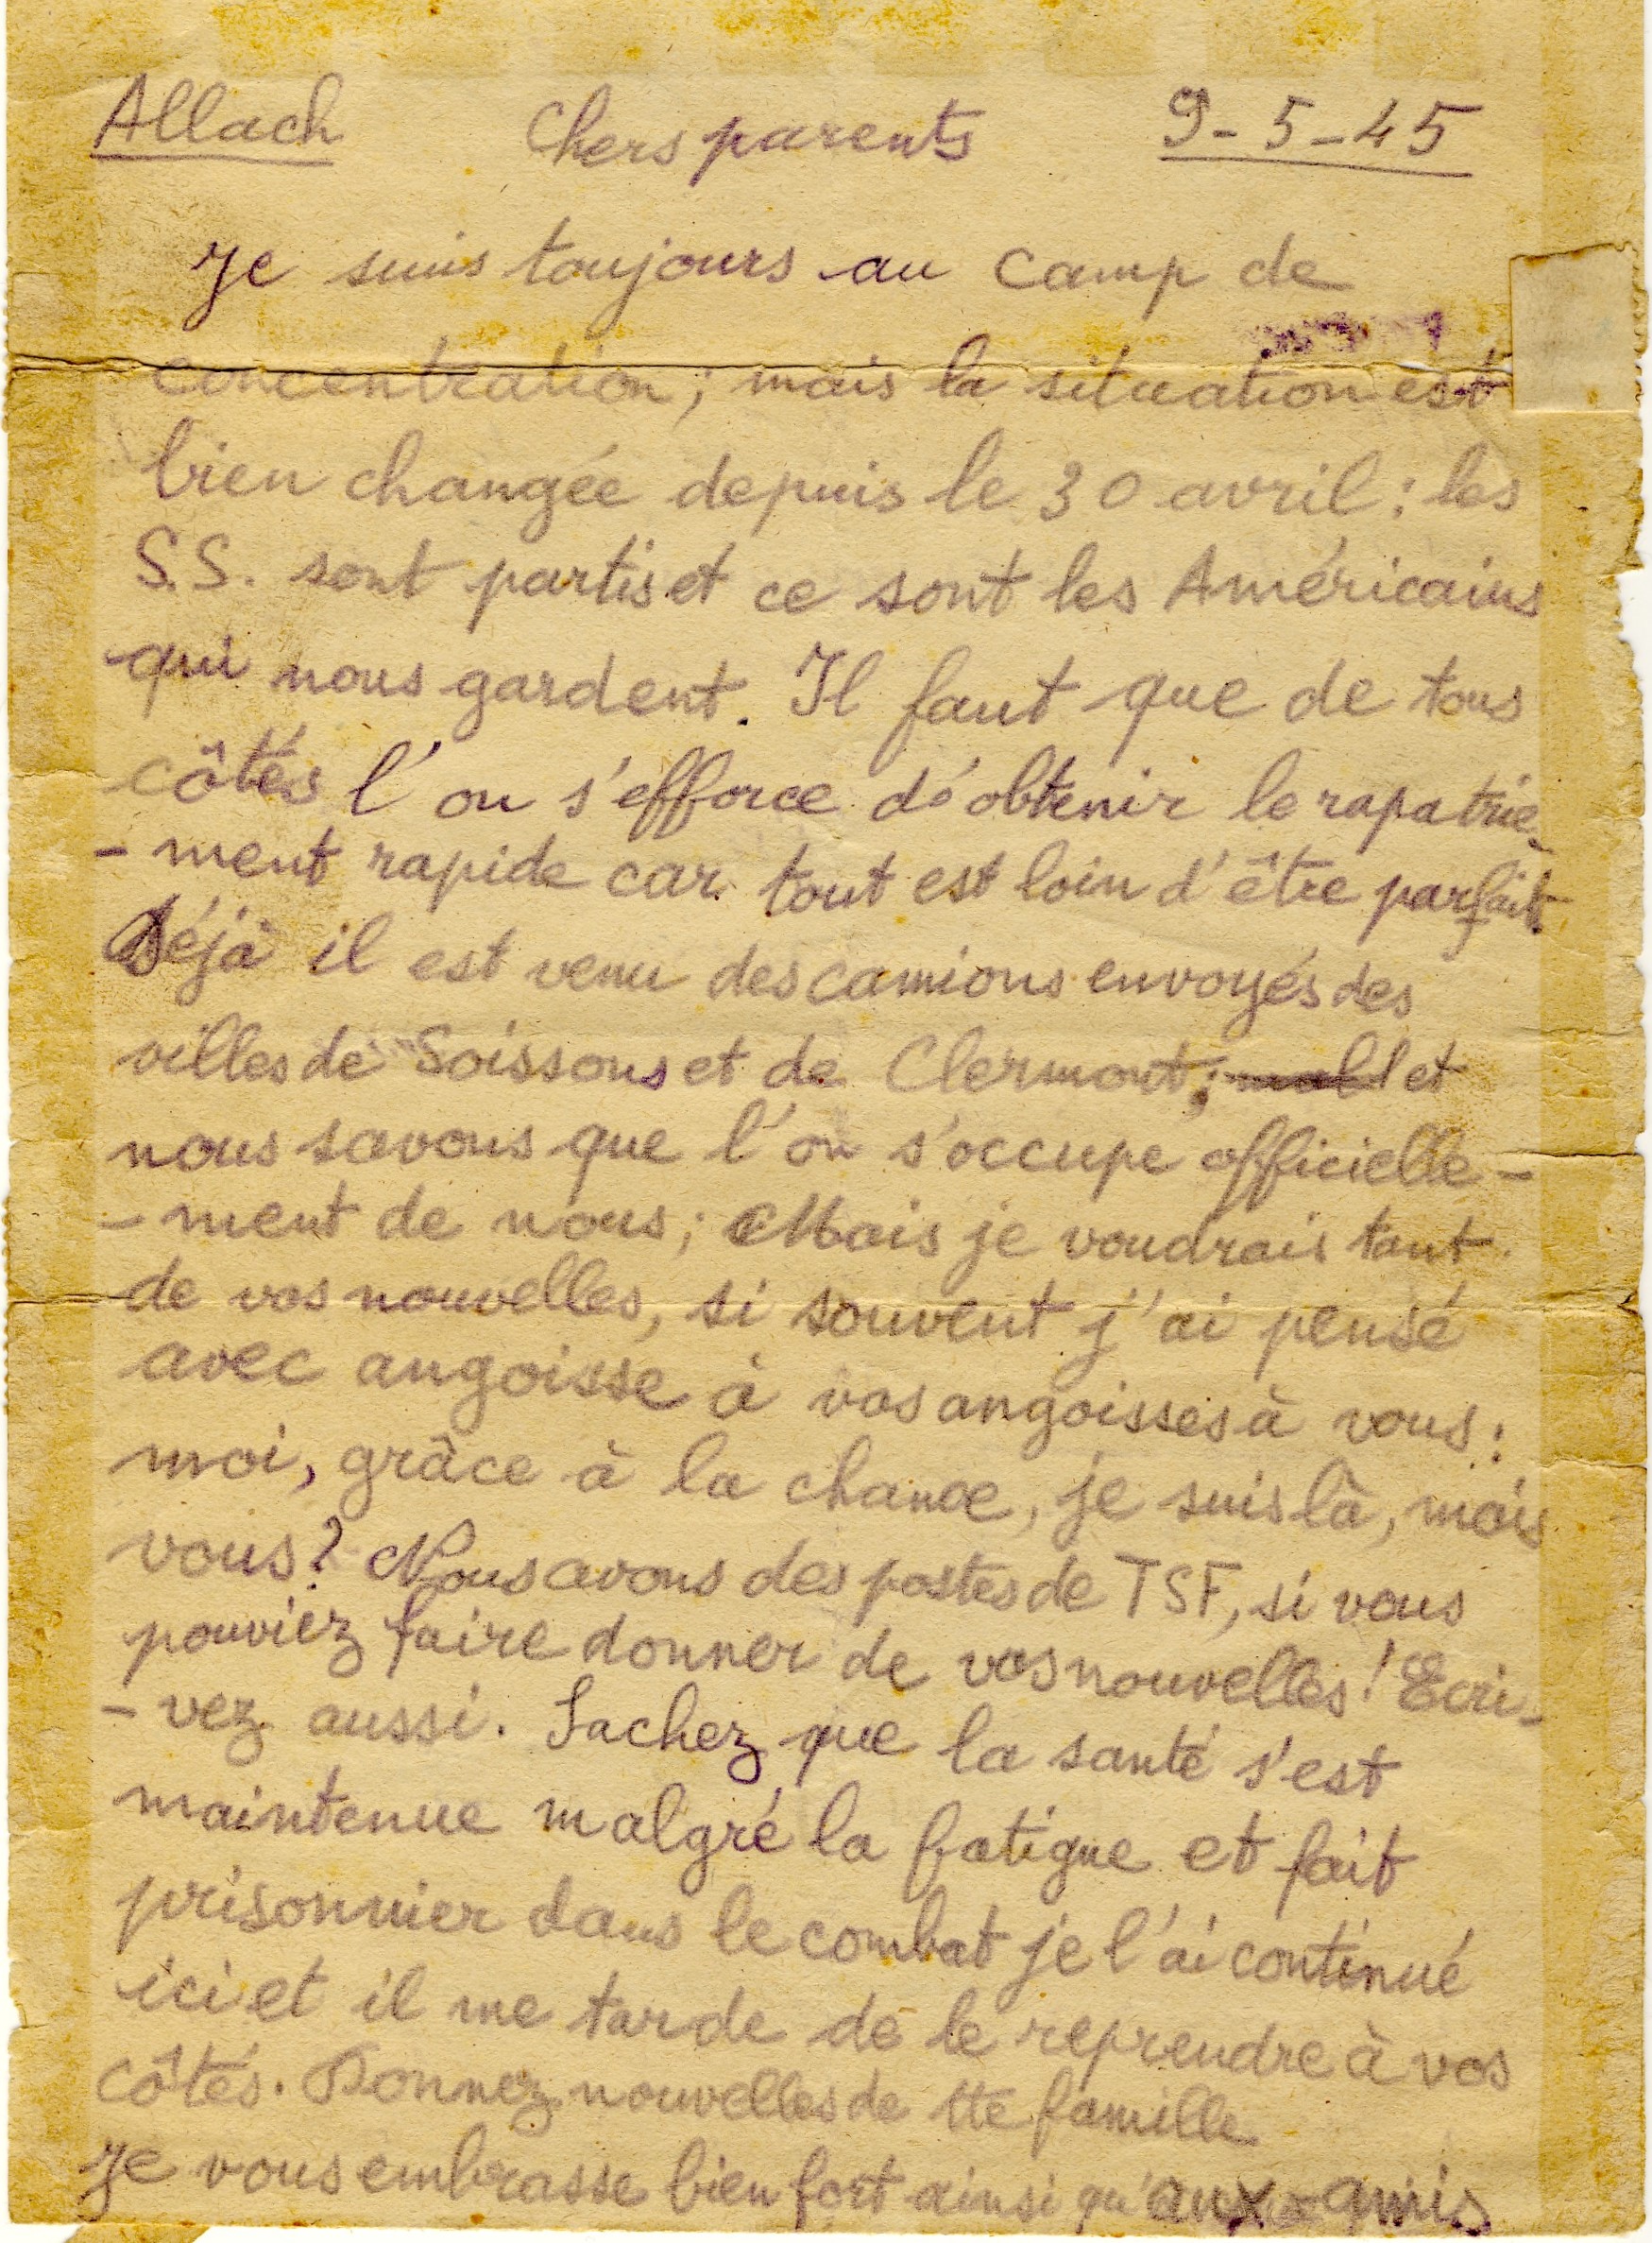 Allach Chers parents 9-5-45
Je suis toujours au camp de
concentration; mais la situation est
bien changée depuis le 30 avril: les
S.S. sont partis et ce sont les Américains
qui nous gardent. Il faut que de tous
côtés l'on s'efforce d'obtenir le rapatrie-
-ment rapide car tout est loin d'être parfait.
Déjà il est venu des camions envoyés des
villes de Soissons et de Clermont; et
nous savons que l'on s'occupe officielle-
-ment de nous; Mais je voudrais tant
de vos nouvelles, si souvent j'ai pensé
avec angoisse à vos angoisses à vous:
moi, grâce à la chance, je suis là, mais
vous? Nous avons des postes de TSF, si vous
pouviez faire donner de vos nouvelles! Ecri-
-vez aussi. Sachez que la santé s'est
maintenue malgré la fatigue et fait
prisonnier dans le combat je l'ai continué
ici et il me tarde de le reprendre à vos
côtés. Donnez nouvelles de tte famille
Je vous embrasse bien fort ainsi qu'aux amis